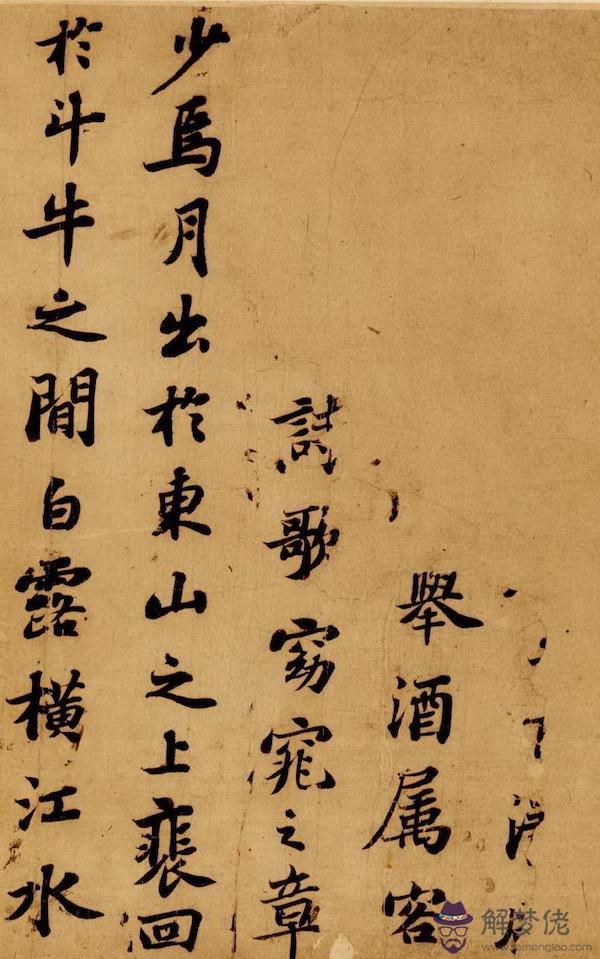 舉酒属客
歌窈窕之章
少焉月出於東山之上裴回
於斗牛之間白露橫江水
解梦佬
www.jiemenglao.com